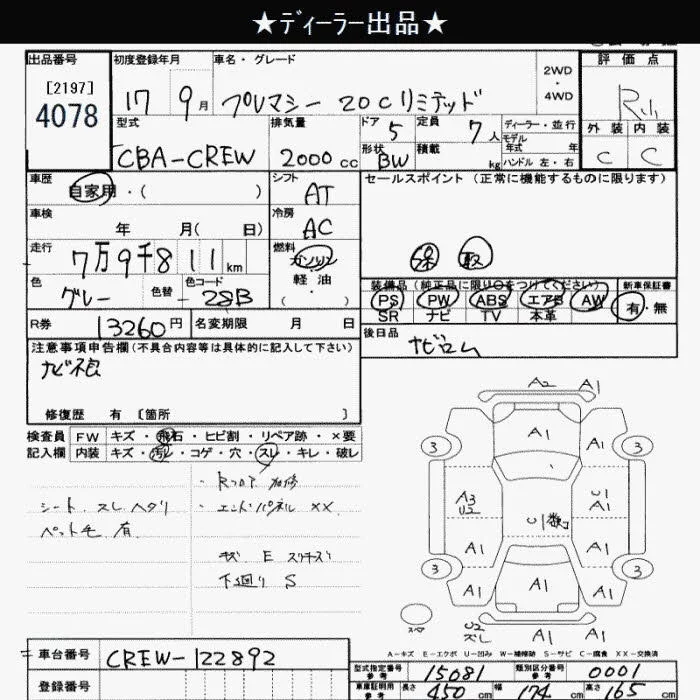 ★ディーラー出品★
出品番号
[2197]
4078
初度登録年月
17 9月
車名・グレード
プレマシー 20Cリミテッド
2WD
・
4WD
評価点
外装 内装
C C
型式
CBA-CREW
排気量
2000cc
ドア 5
定員 7人
形状 BW
積載 kg
ディーラー・並行
モデル
年式 年
ハンドル 左・右
車歴
自家用・( )
シフト
AT
セールスポイント (正常に機能するものに限ります)
保 取
車検
年 月( 日)
冷房
AC
走行
7万9千811km
燃料
ガソリン
軽油
・( )
色
グレー
色替
色コード
28B
装備品(純正品に限り○をつけてください)
PS PW ABS エアB AW
SR ナビ TV 本革
新車保証書
有・無
R券
13260円
名変期限 月 日
後日品
ナビロム
注意事項申告欄(不具合内容等は具体的に記入して下さい)
修復歴 有 〔箇所 〕
検査員
記入欄
FW キズ・飛石・ヒビ割・リペア跡・×要
内装 キズ・汚レ・コゲ・穴・スレ・キレ・破レ
シート スレ ヘタリ
ペット毛 有
・エンドパネル XX
キズ E スリキズ
下廻り S
A2 A1
A1
3 3
A3
U2
U1
A1
A1 A1
3 3
A1 A1 A1
スペア
A-キズ E-エクボ U-凹み W-補修跡 S-サビ C-腐食 XX-交換済
車台番号
CREW-122892
登録番号
型式指定番号
参考
15081
類別区分番号
参考
0001
車庫証明用
参考
長さ 450cm 幅 174cm 高さ 165cm